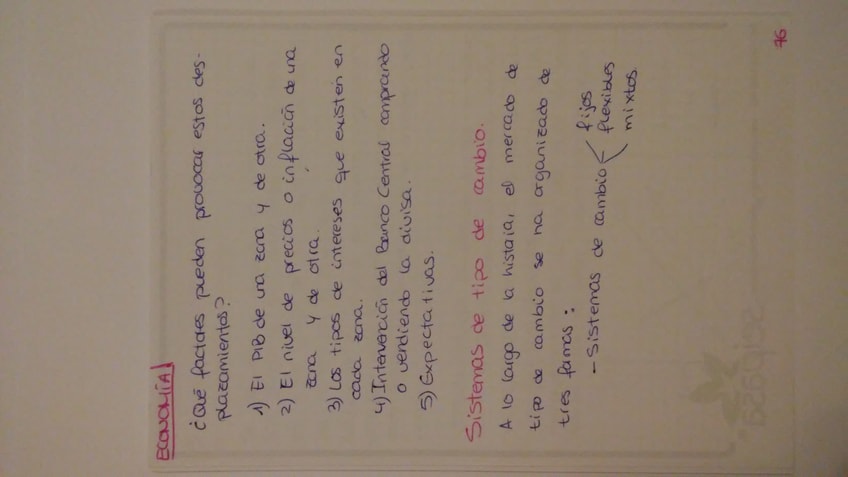 ECONOMÍA
¿Qué factores pueden provocar estos des-
plazamientos?
1) El PIB de una zona y de otra.
2) El nivel de precios o inflación de una
zona y de otra.
3) Los tipos de intereses que existen en
cada zona.
4) Intervención del Banco Central comprando
o vendiendo la divisa.
5) Expectativas.
Sistemas de tipo de cambio.
A lo largo de la historia, el mercado de
tipo de cambio se ha organizado de
tres formas:
- Sistemas de cambio < fijos
flexibles
mixtos
76